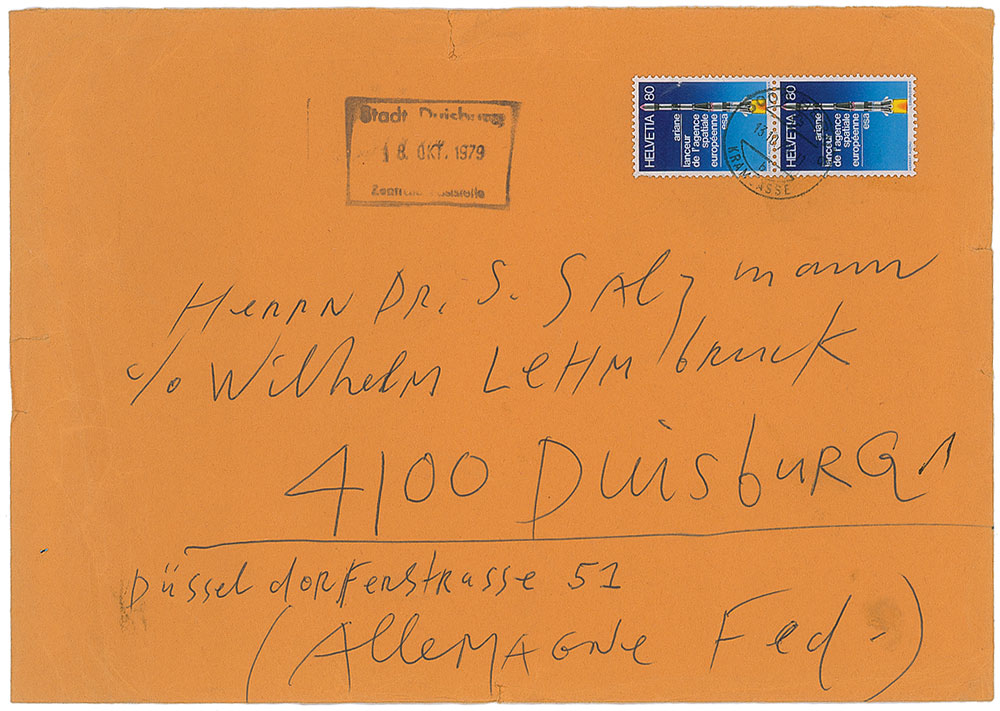 Stadt Duisburg
18. OKT. 1979
Zentrale Poststelle
HELVETIA 80
ariane
lanceur
de l'agence
spatiale
européenne
esa
HELVETIA 80
ariane
lanceur
de l'agence
spatiale
européenne
esa
13.10
KRAMGASSE
Herrn Dr. S. SAlzmann
c/o Wilhelm LeHMbruck
4100 DuisburG 1
Düsseldorferstrasse 51
(AlleMAGNe Fed-)